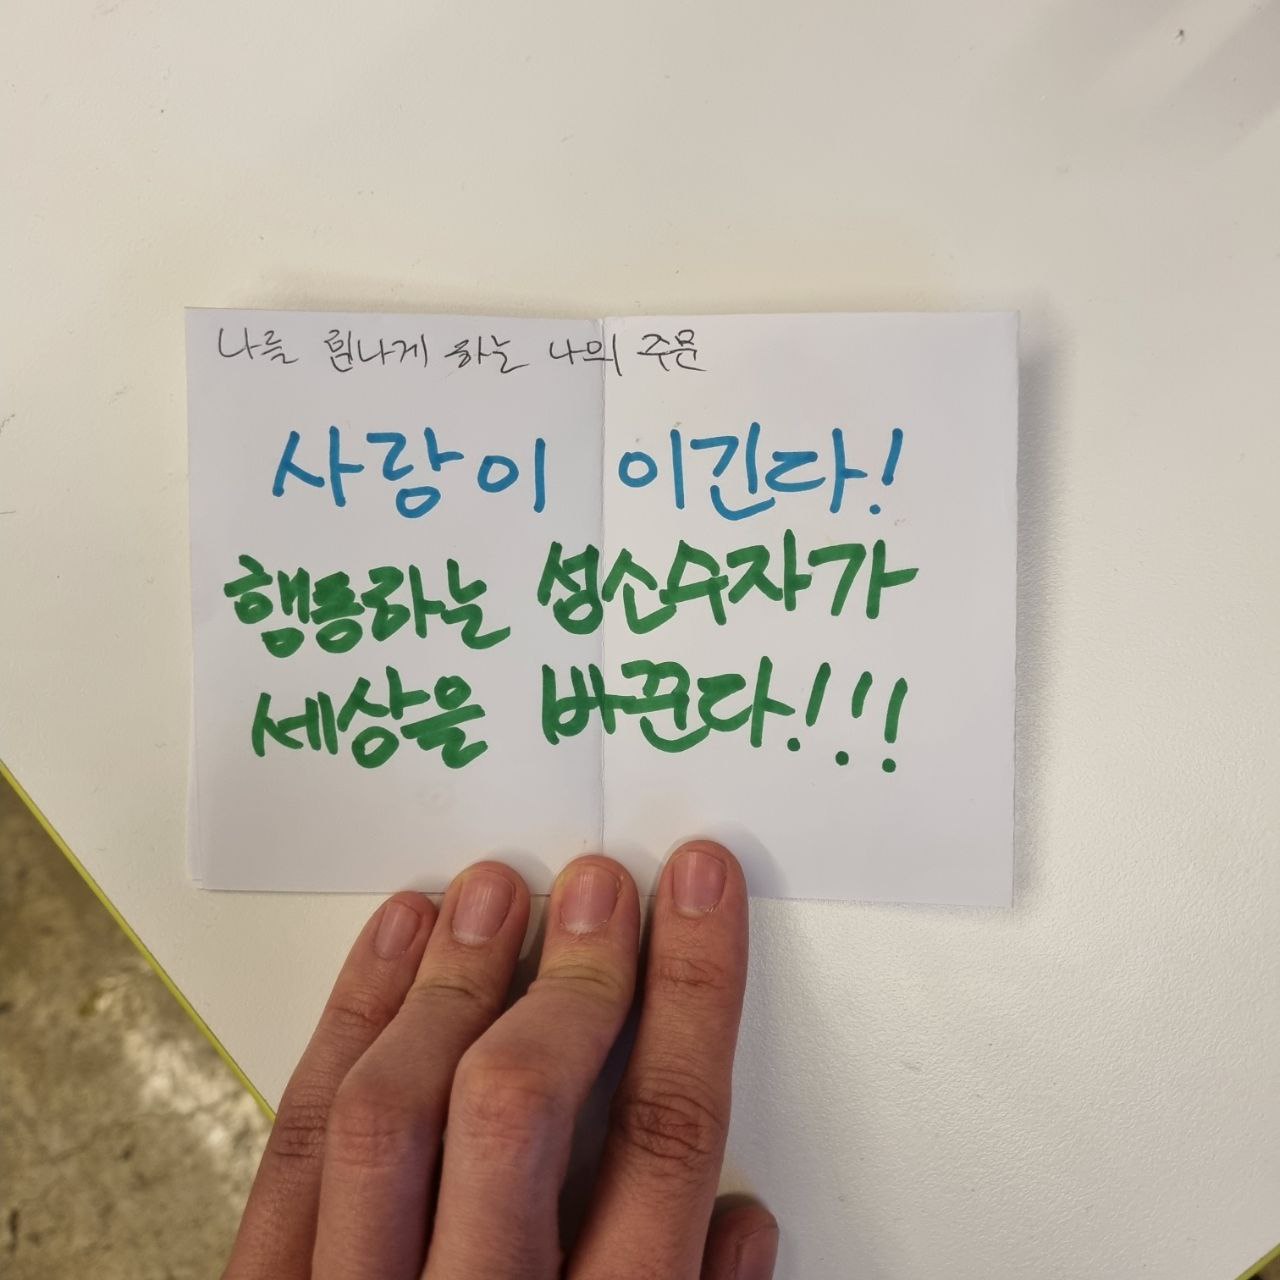 나를 힘나게 하는 나의 주문
사랑이 이긴다!
행동하는 성소수자가
세상을 바꾼다!!!